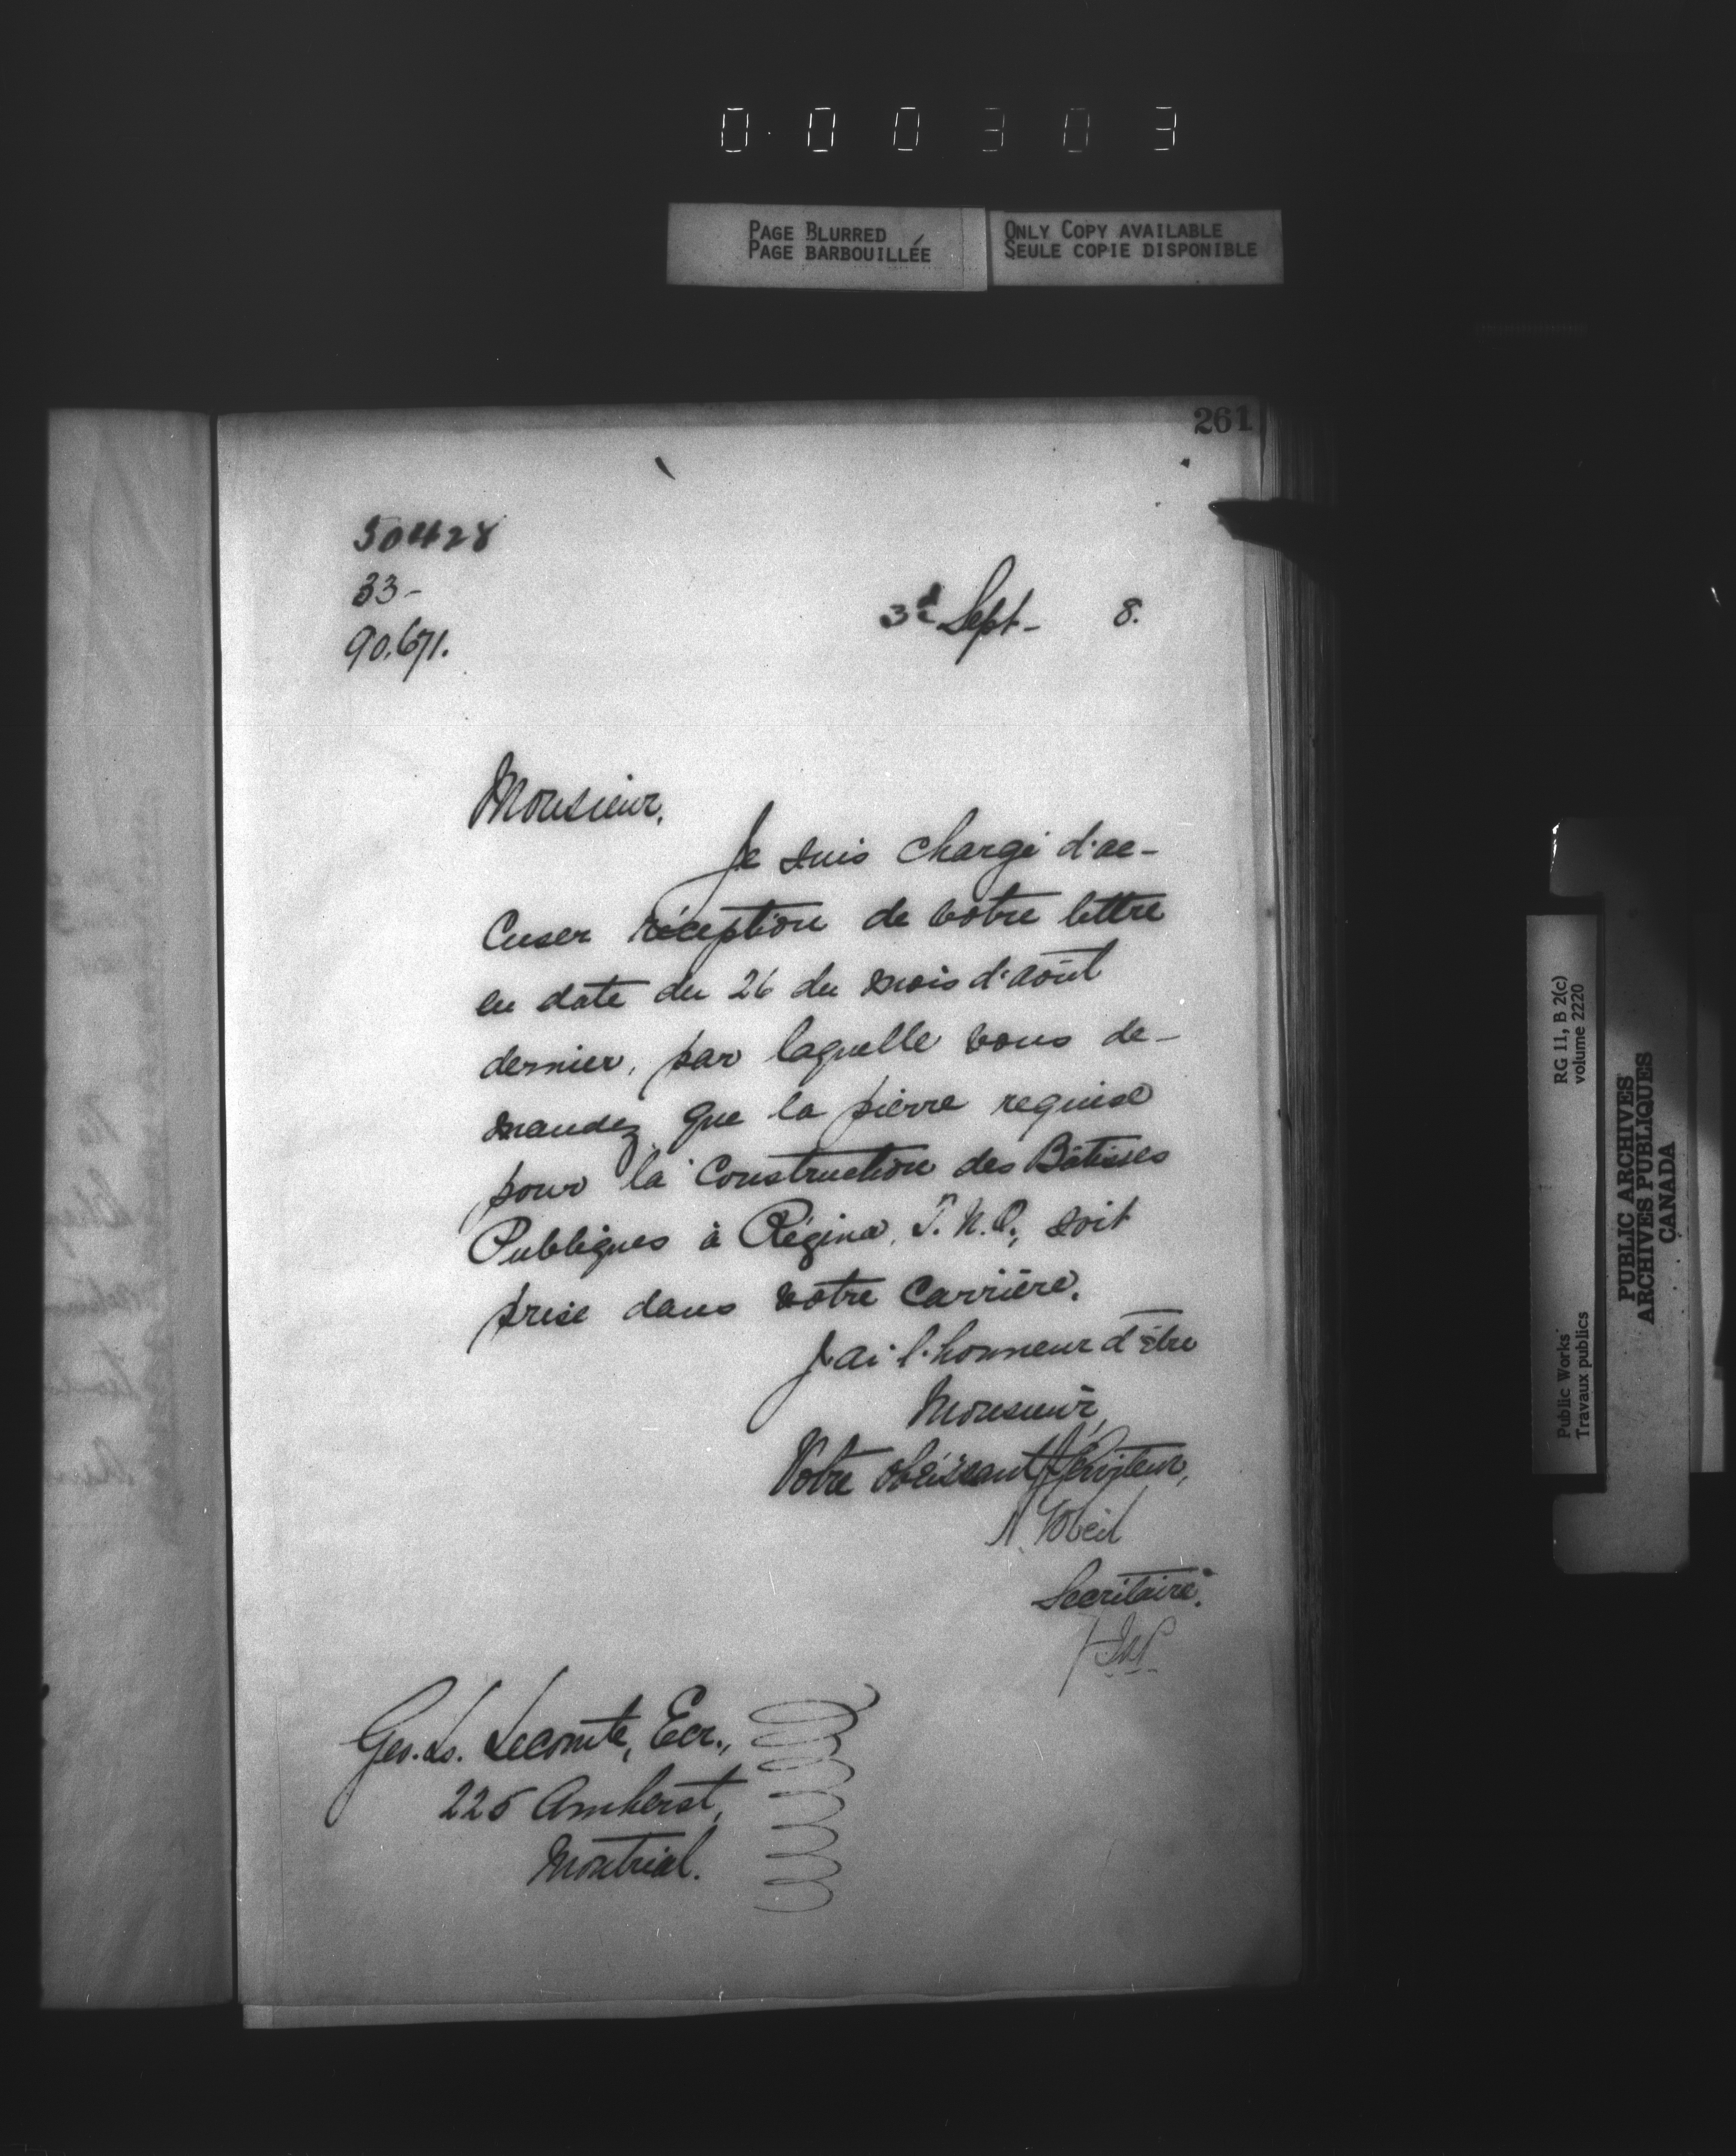 000303
PAGE BLURRED
PAGE BARBOUILLÉE
ONLY COPY AVAILABLE
SEULE COPIE DISPONIBLE
261
50428
33-
90,671.
3d Sept- 8.
Monsieur,
Je suis chargé d'ac-
cuser réception de votre lettre
en date du 26 du mois d'août
dernier, par laquelle vous de-
mandez que la pierre requise
pour la Construction des Bâtisses
Publiques à Régina, T.N.O., soit
prise dans votre Carrière.
J'ai l'honneur d'être
Monsieur,
Votre obéissant Serviteur,
A. Gobeil
Secrétaire.
Geo. Ls. Lecomte, Ecr.,
225 Amherst,
Montréal.
RG 11, B 2(c)
volume 2220
Public Works
Travaux publics
PUBLIC ARCHIVES
ARCHIVES PUBLIQUES
CANADA